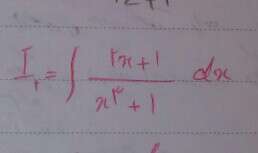 I₁ = ∫ (۲x+1)/(x^۲+1) dx